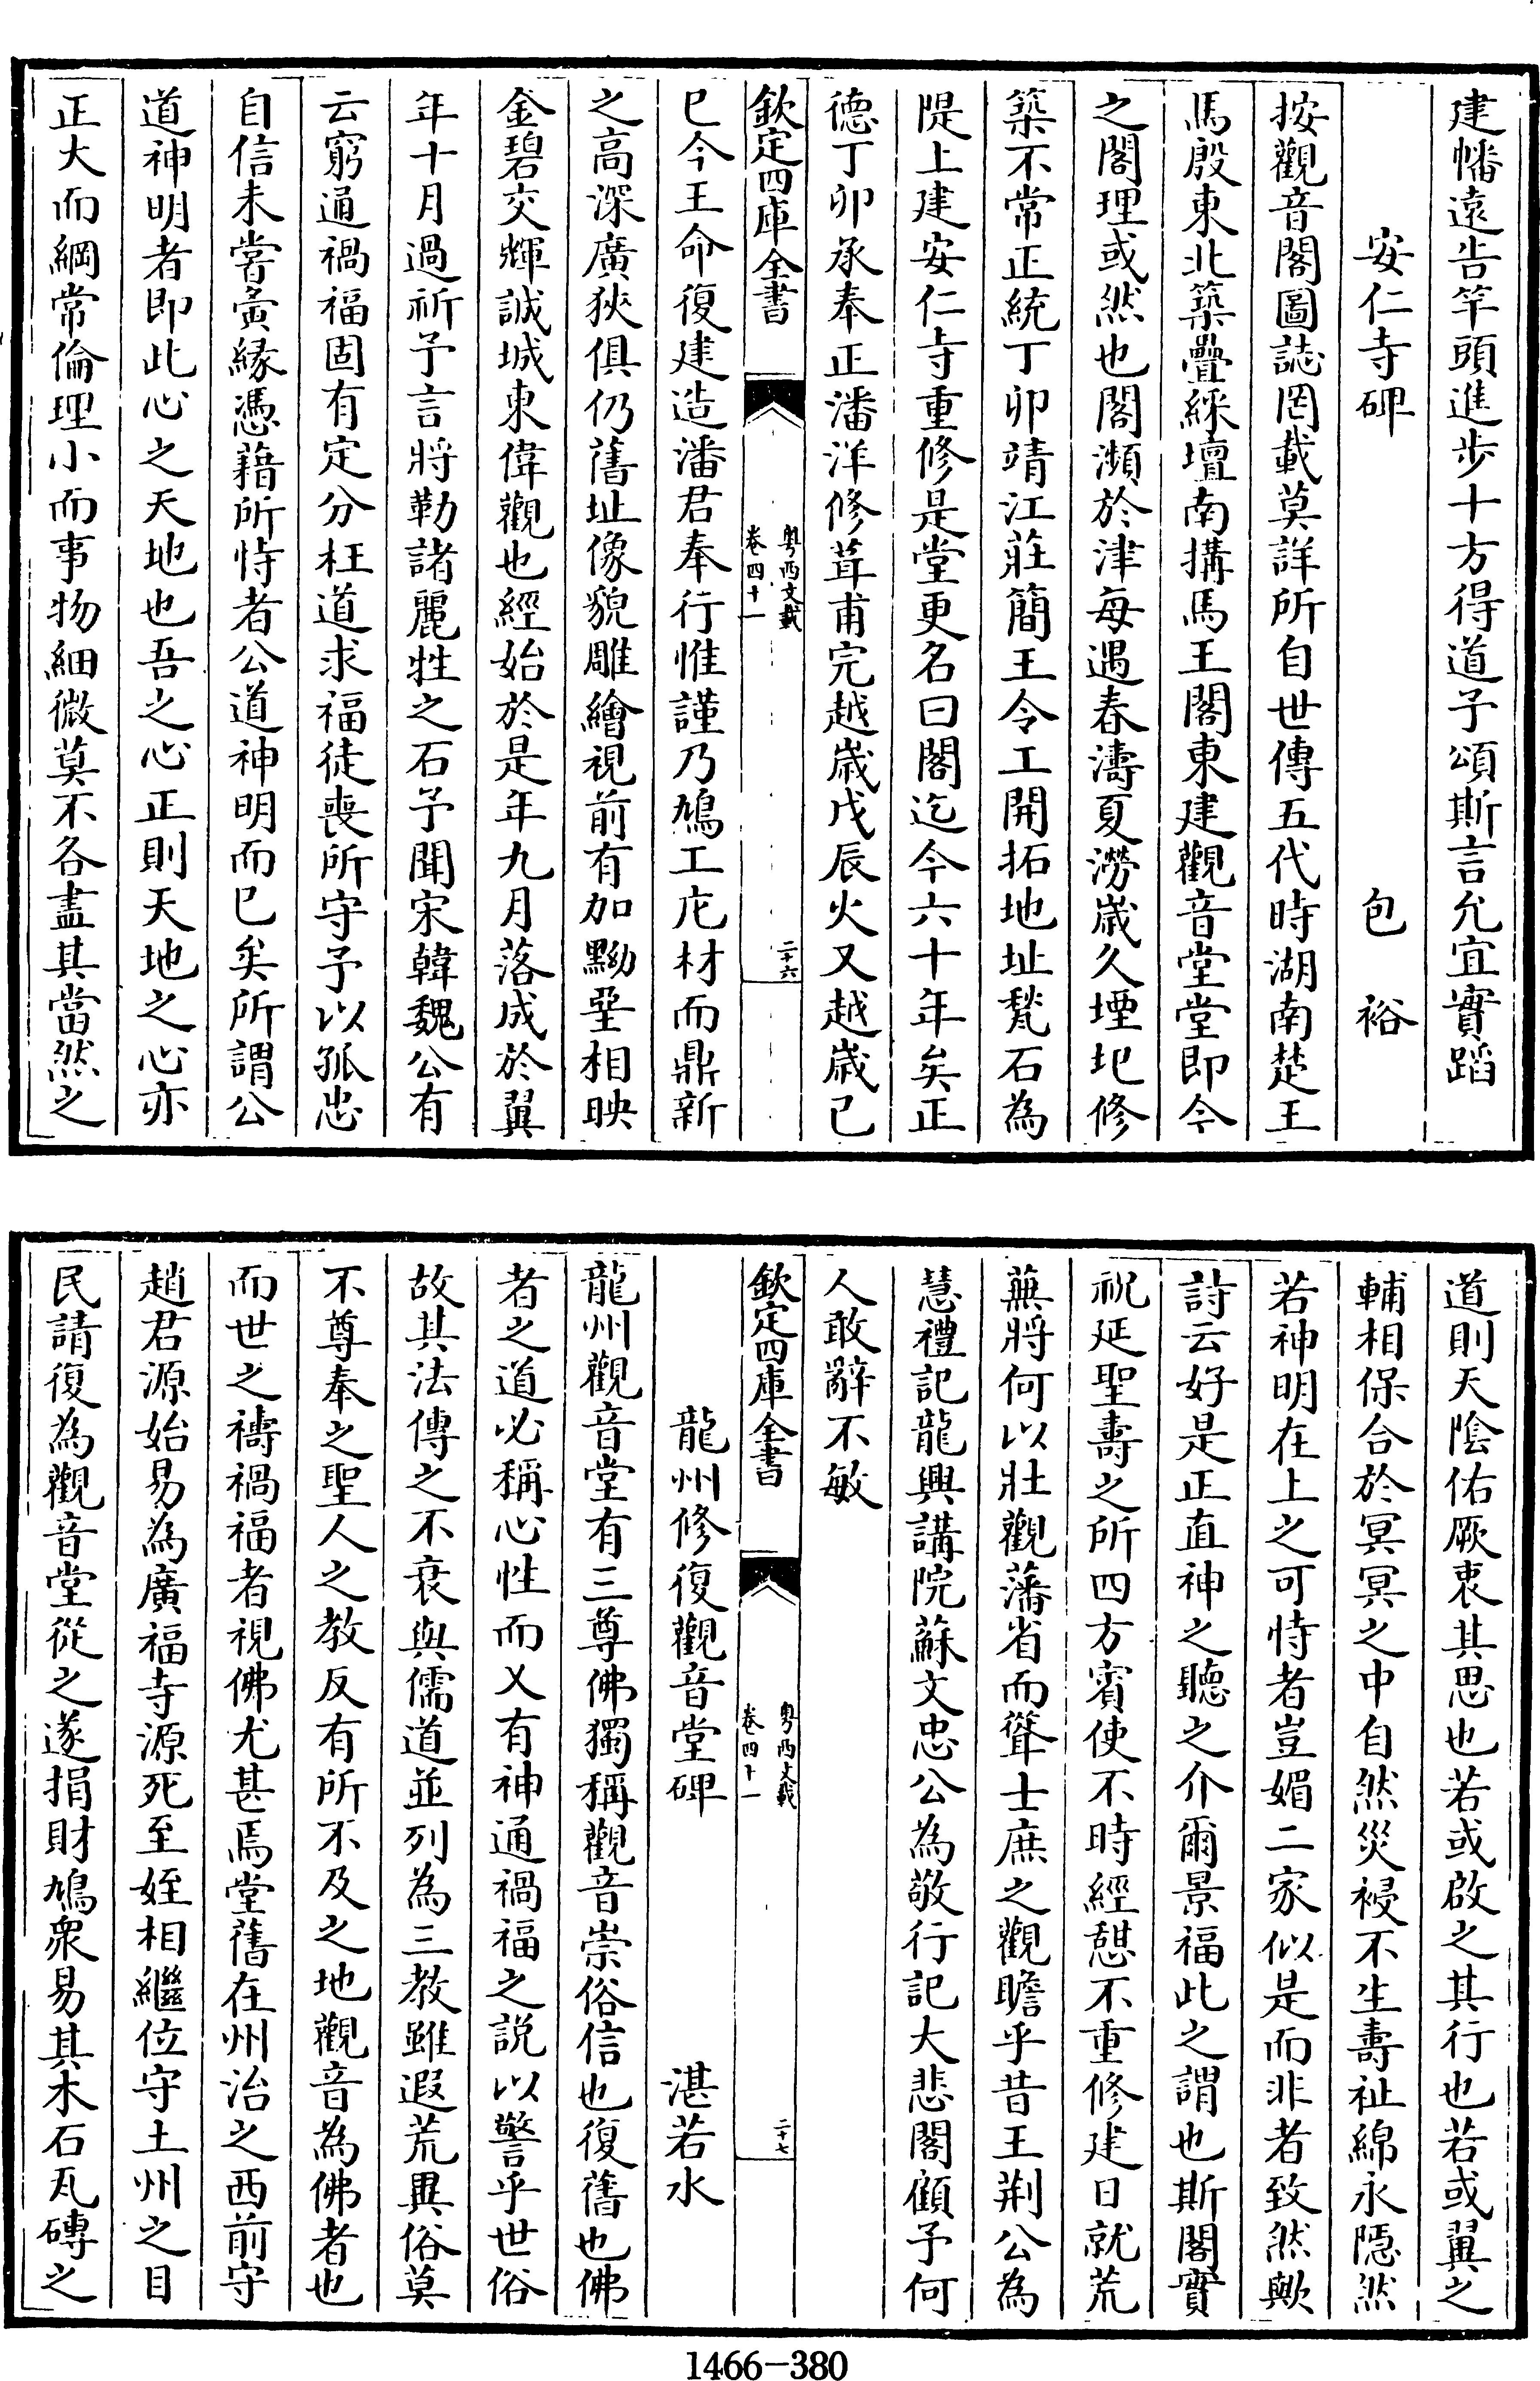 建幡遠告竿頭進步十方得道予頌斯言允宜實蹈
安仁寺碑 包裕
按觀音閣圖誌罔載莫詳所自世傳五代時湖南楚王
馬殷東北築疊綵壇南搆馬王閣東建觀音堂堂即今
之閣理或然也閣瀕於津每遇春濤夏澇歲久堙圮修
築不常正統丁卯靖江莊簡王令工開拓地址甃石為
隄上建安仁寺重修是堂更名曰閣迄今六十年矣正
德丁卯承奉正潘洋修葺甫完越歲戊辰火又越歲己
欽定四庫全書 粵西文載 卷四十一 二十六
巳今王命復建造潘君奉行惟謹乃鳩工庀材而鼎新
之高深廣狹俱仍舊址像貌雕繪視前有加黝堊相映
金碧交輝誠城東偉觀也經始於是年九月落成於翼
年十月過祈予言將勒諸麗牲之石予聞宋韓魏公有
云窮通禍福固有定分枉道求福徒喪所守予以孤忠
自信未嘗夤緣憑藉所恃者公道神明而已矣所謂公
道神明者即此心之天地也吾之心正則天地之心亦
正大而綱常倫理小而事物細微莫不各盡其當然之
道則天陰佑厥衷其思也若或啟之其行也若或翼之
輔相保合於冥冥之中自然災祲不生壽祉綿永隱然
若神明在上之可恃者豈媚二家似是而非者致然歟
詩云好是正直神之聽之介爾景福此之謂也斯閣實
祝延聖壽之所四方賓使不時經憩不重修建日就荒
蕪將何以壯觀藩省而聳士庶之觀瞻乎昔王荆公為
慧禮記龍興講院蘇文忠公為敬行記大悲閣顧予何
人敢辭不敏
欽定四庫全書 粵西文載 卷四十一 二十七
龍州修復觀音堂碑 湛若水
龍州觀音堂有三尊佛獨稱觀音崇俗信也復舊也佛
者之道必稱心性而乂有神通禍福之說以警乎世俗
故其法傳之不衰與儒道並列為三教雖遐荒異俗莫
不尊奉之聖人之教反有所不及之地觀音為佛者也
而世之禱禍福者視佛尤甚焉堂舊在州治之西前守
趙君源始易為廣福寺源死至姪相繼位守土州之目
民請復為觀音堂從之遂捐財鳩衆易其木石瓦磚之
1466-380